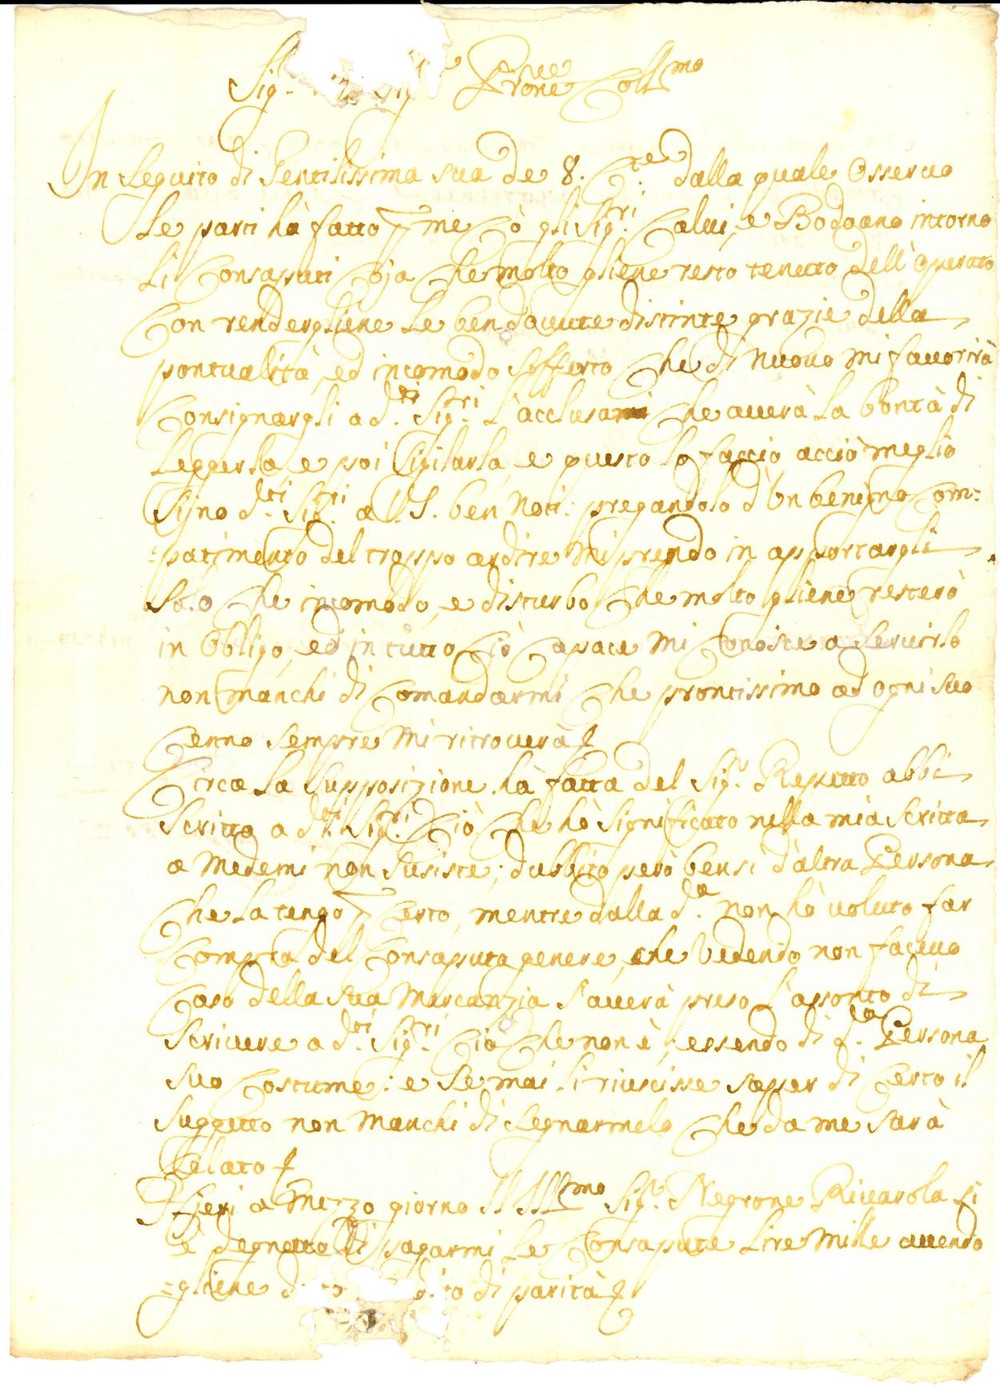 Sig.r Sig Prone Coll.mo
In seguito di Gentilissima sua de 8. C.te dalla quale Osservo
le parti ha fatto per me Cō gli Sig.ri Calvi, e Bodoano intorno
li Consaputi Coja che molto gliene resto tenuto dell'operato
Con rendergliene le ben dovute distinte grazie della
pontualità, ed incomodo sofferto che di nuovo mi favorirà
Consignargli a d.ti Sig.ri l'acclusa che averà la bontà di
leggerla e poi sigilarla, e questo lo faccio acciò meglio
sijno d.ti Sig.ri a V.S. ben Noti: pregandolo d'Un benigno Com:
=patimento del troppo ardire mi prendo in apportargli
solo che incomodo, e disturbo, che molto gliene resterò
in Obligo, ed in tutto Ciò Capace mi Conosce a servirlo
non manchi di Comandarmi che prontissimo ad ogni suo
Cenno sempre mi ritroverà
Circa la supposizione hà fatta del Sig.r Repetto abbi
scritto a d.ti Sig.ri Ciò che hò significato nella mia scritta
a Medemi non susiste; dubbito però bensì d'altra Persona
che la tengo per Certo, mentre dalla d.a non hò voluto far
Compra del Consaputa genere, che Vedendo non facevo
Caso della sua Mercanzia s'averà preso l'assonto di
scrivere a d.ti Sig.ri Ciò che non è, essendo di d.a Persona
suo Costume: e se mai li riuscisse saper di Certo il
suggetto non Manchi di segnarmelo che da me sarà
Celato
Hieri a Mezzo giorno Il Ill.mo Sig.r Negrone Rivarola si
è degnato di pagarmi le Consapute Lire Mille avendo
=gliene di parità